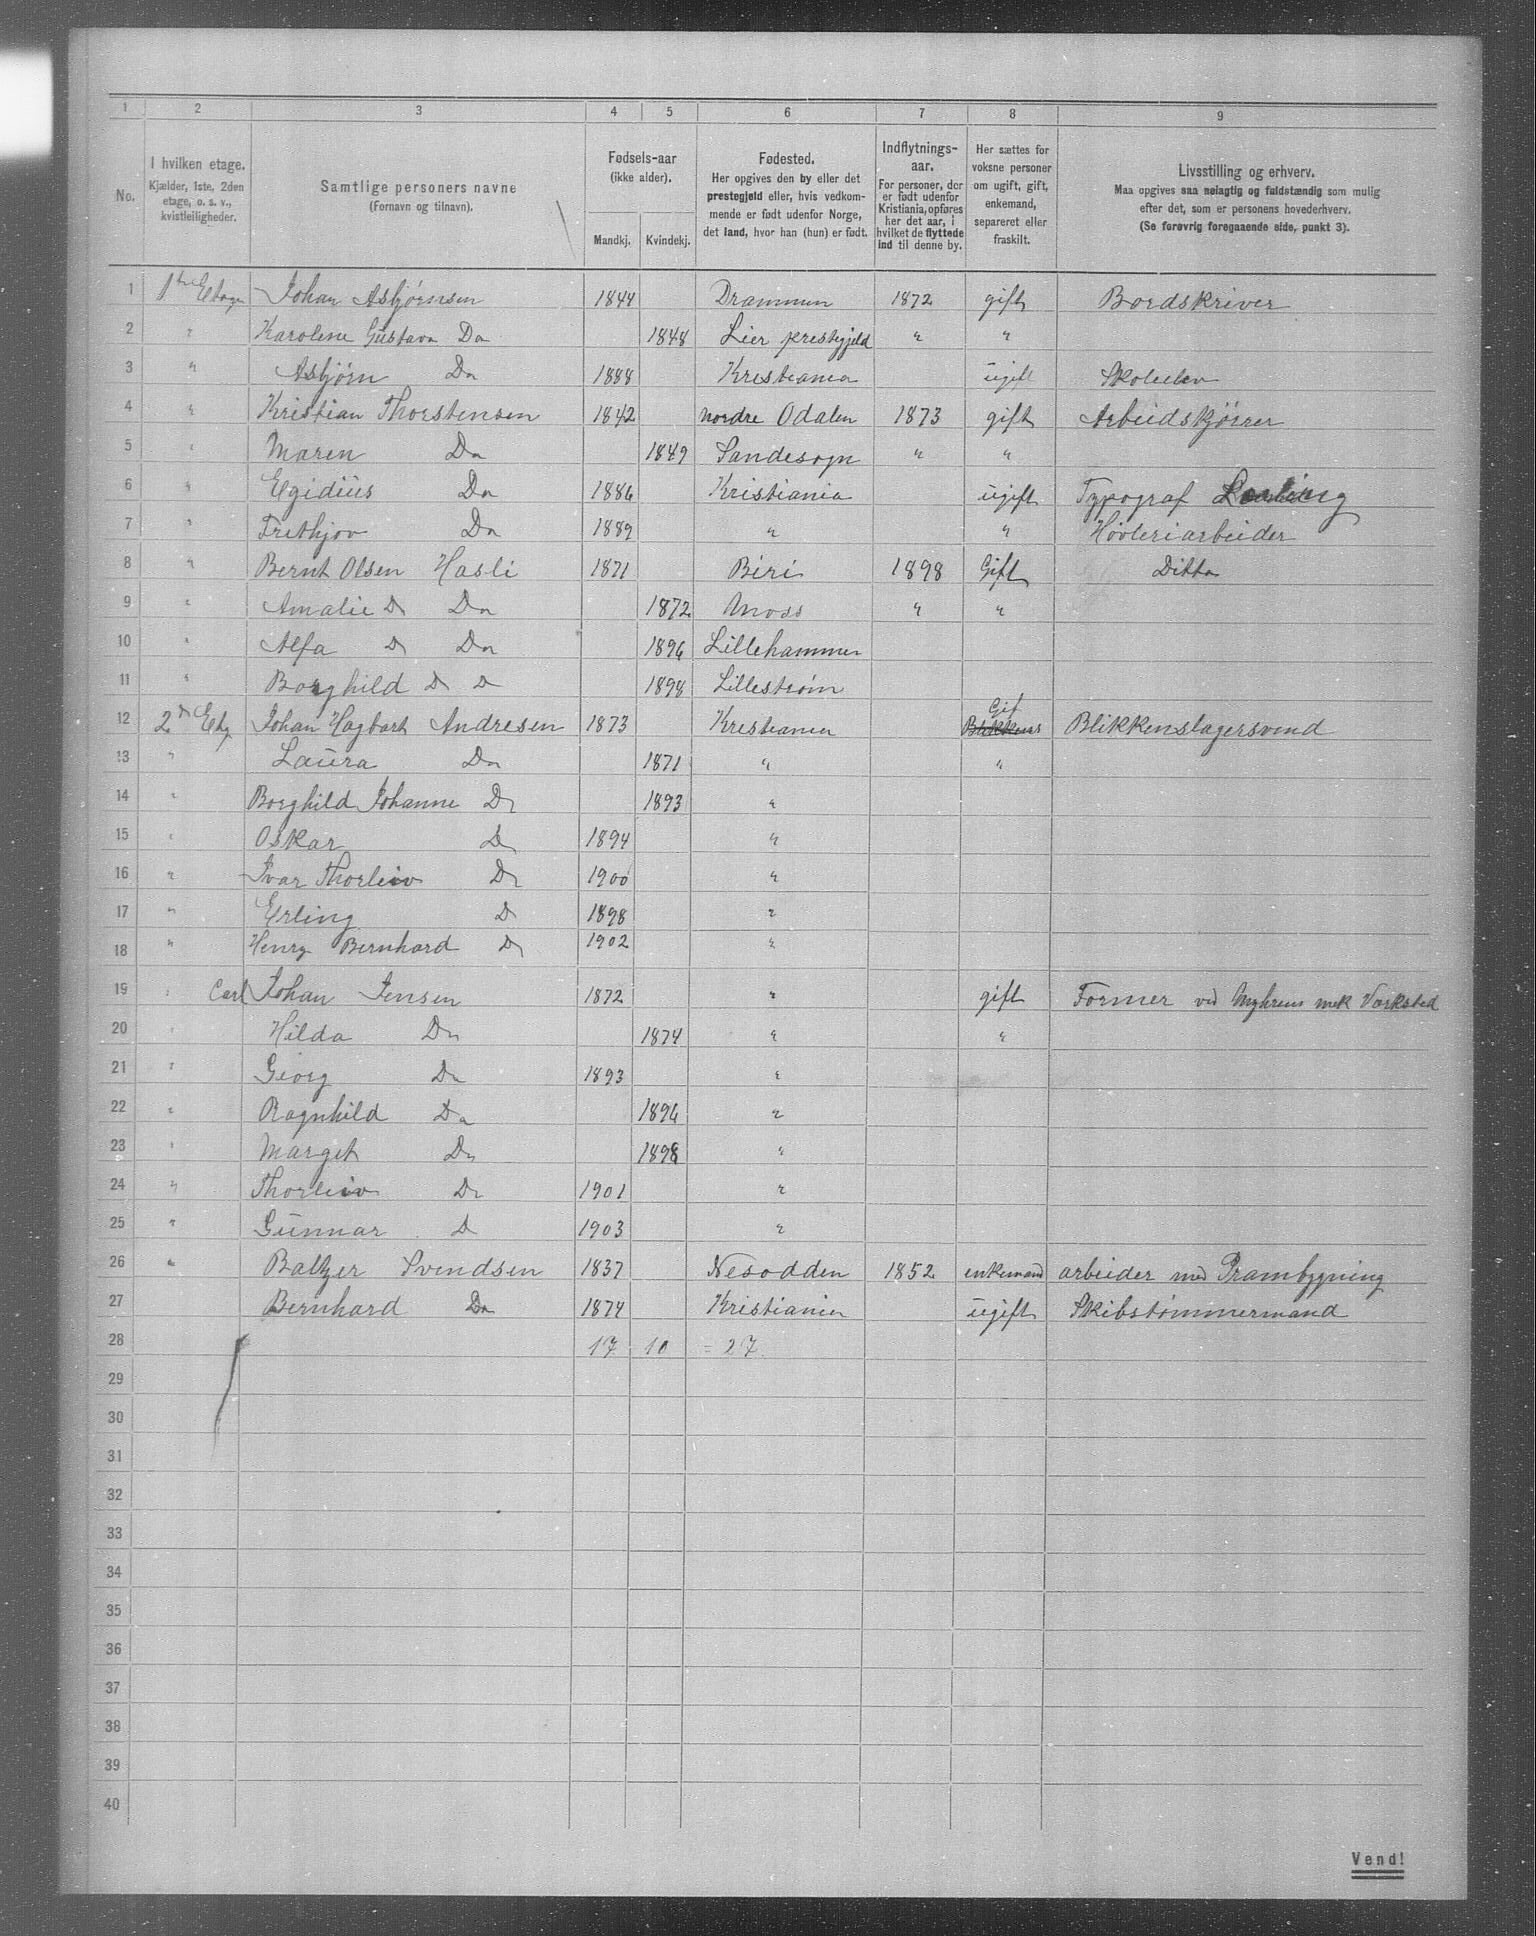 1 2 3 4 5 6 7 8 9
No. I hvilken etage. Kjælder, 1ste, 2den etage, o. s. v., kvistleiligheder. Samtlige personers navne (Fornavn og tilnavn). Fødsels-aar (ikke alder). Mandkj. Kvindekj. Fødested. Her opgives den by eller det prestegjeld eller, hvis vedkommende er født udenfor Norge, det land, hvor han (hun) er født. Indflytnings-aar. For personer, der er født udenfor Kristiania, opføres her det aar, i hvilket de flyttede ind til denne by. Her sættes for voksne personer om ugift, gift, enkemand, separeret eller fraskilt. Livsstilling og erhverv. Maa opgives saa nøiagtig og fuldstændig som mulig efter det, som er personens hovederhverv. (Se forøvrig foregaaende side, punkt 3).
1 1ste Etage Johan Asbjørnsen 1844 Drammen 1872 gift Bordskriver
2 " Karolene Gustava Do 1848 Lier prestegjeld " "
3 " Asbjørn Do 1888 Kristiania ugift Skoleelev
4 " Kristian Thorstensen 1842 nordre Odalen 1873 gift Arbeidskjører
5 " Maren Do 1849 Sandesogn " "
6 " Egidius Do 1886 Kristiania ugift Typograf
7 " Frithjov Do 1889 " " Høvleriarbeider
8 " Bernt Olsen Hasli 1871 Biri 1898 Gift Ditto
9 " Amalie D Do 1872 Moss " "
10 " Alfa D Do 1896 Lillehammer
11 " Borghild D D 1898 Lillestrøm
12 2d Etg Johan Hagbart Andresen 1873 Kristiania Gif Blikkens Blikkenslagersvend
13 " Laura Do 1871 " "
14 " Borghild Johanne Do 1893 "
15 " Oskar Do 1894 "
16 " Ivar Thorleiv Do 1900 "
17 " Erling D 1898 "
18 " Henry Bernhard Do 1902 "
19 " Carl Johan Jensen 1872 " gift Former ved Myhrens mek Værksted
20 " Hilda Do 1874 " "
21 " Georg Do 1893 "
22 " Ragnhild Do 1896 "
23 " Marget Do 1898 "
24 " Thorleiv Do 1901 "
25 " Gunnar D 1903 "
26 " Baltzer Svendsen 1837 Nesodden 1852 enkemand arbeider med Prambygning
27 Bernhard Do 1874 Kristiania ugift Skibstømmermand
28 17 10 = 27
29
30
31
32
33
34
35
36
37
38
39
40
Vend!